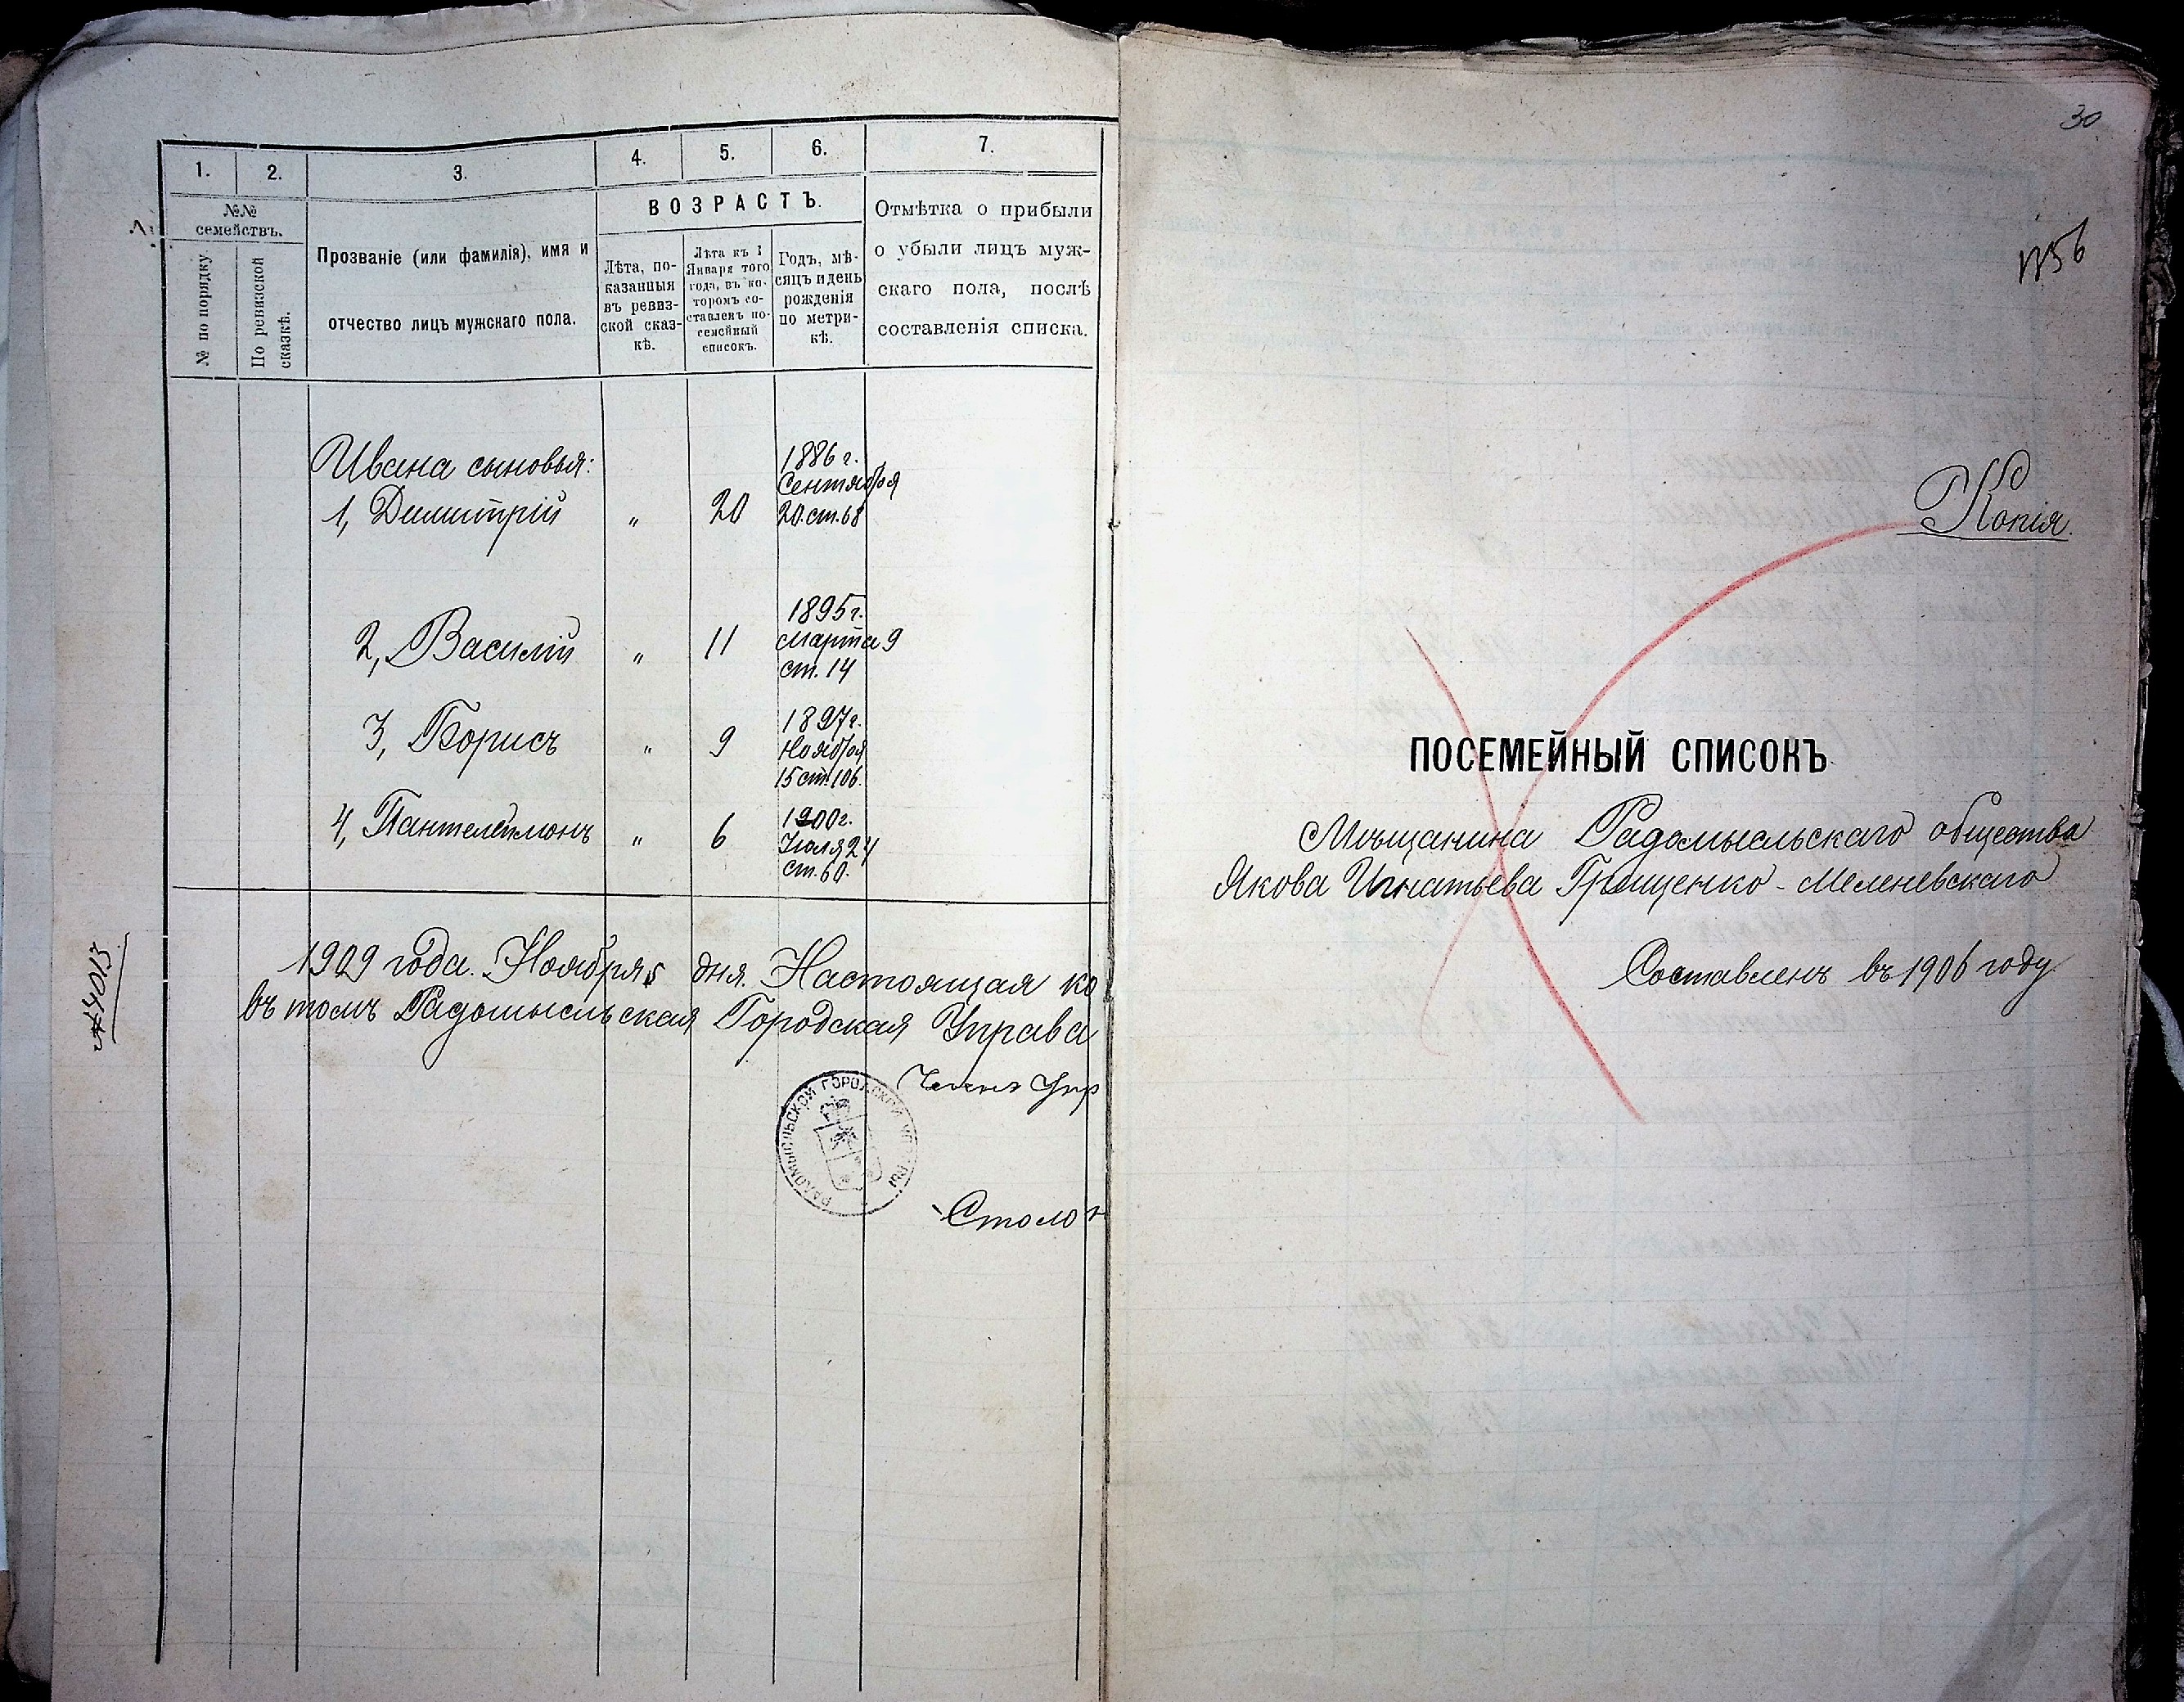 1.
2.
3.
4.
5.
6.
7.
№№
семействъ.
№ по порядку
По ревизской
сказкѣ.
Прозваніе (или фамилія), имя и
отчество лицъ мужскаго пола.
ВОЗРАСТЪ.
Лѣта, по-
казанныя
въ ревиз-
ской сказ-
кѣ.
Лѣта къ 1
Января того
года, въ ко-
торомъ со-
ставленъ по-
семейный
списокъ.
Годъ, мѣ-
сяцъ и день
рожденія
по метри-
кѣ.
Отмѣтка о прибыли
о убыли лицъ муж-
скаго пола, послѣ
составленія списка.
Ивана сыновья:
1, Димитрій „ 20 1886 г.
Сентября
20. ст. 68
2, Василій „ 11 1895 г.
Марта 9
ст. 14
3, Борисъ „ 9 1897 г.
Ноября
15 ст. 106.
4, Пантелеимонъ „ 6 1900 г.
Іюля 24
ст. 60.
1909 года. Ноября 5 дня. Настоящая ко
въ томъ Радомысльская Городская Управа
Членъ Упр
РАДОМЫСЛЬСКОЙ ГОРОДСКОЙ УПРАВЫ
Столон
№ 4013
30
№ 56
Копія.
ПОСЕМЕЙНЫЙ СПИСОКЪ
Мѣщанина Радомысльскаго общества
Якова Игнатьева Грищенко-Меленевскаго
Составленъ въ 1906 году.